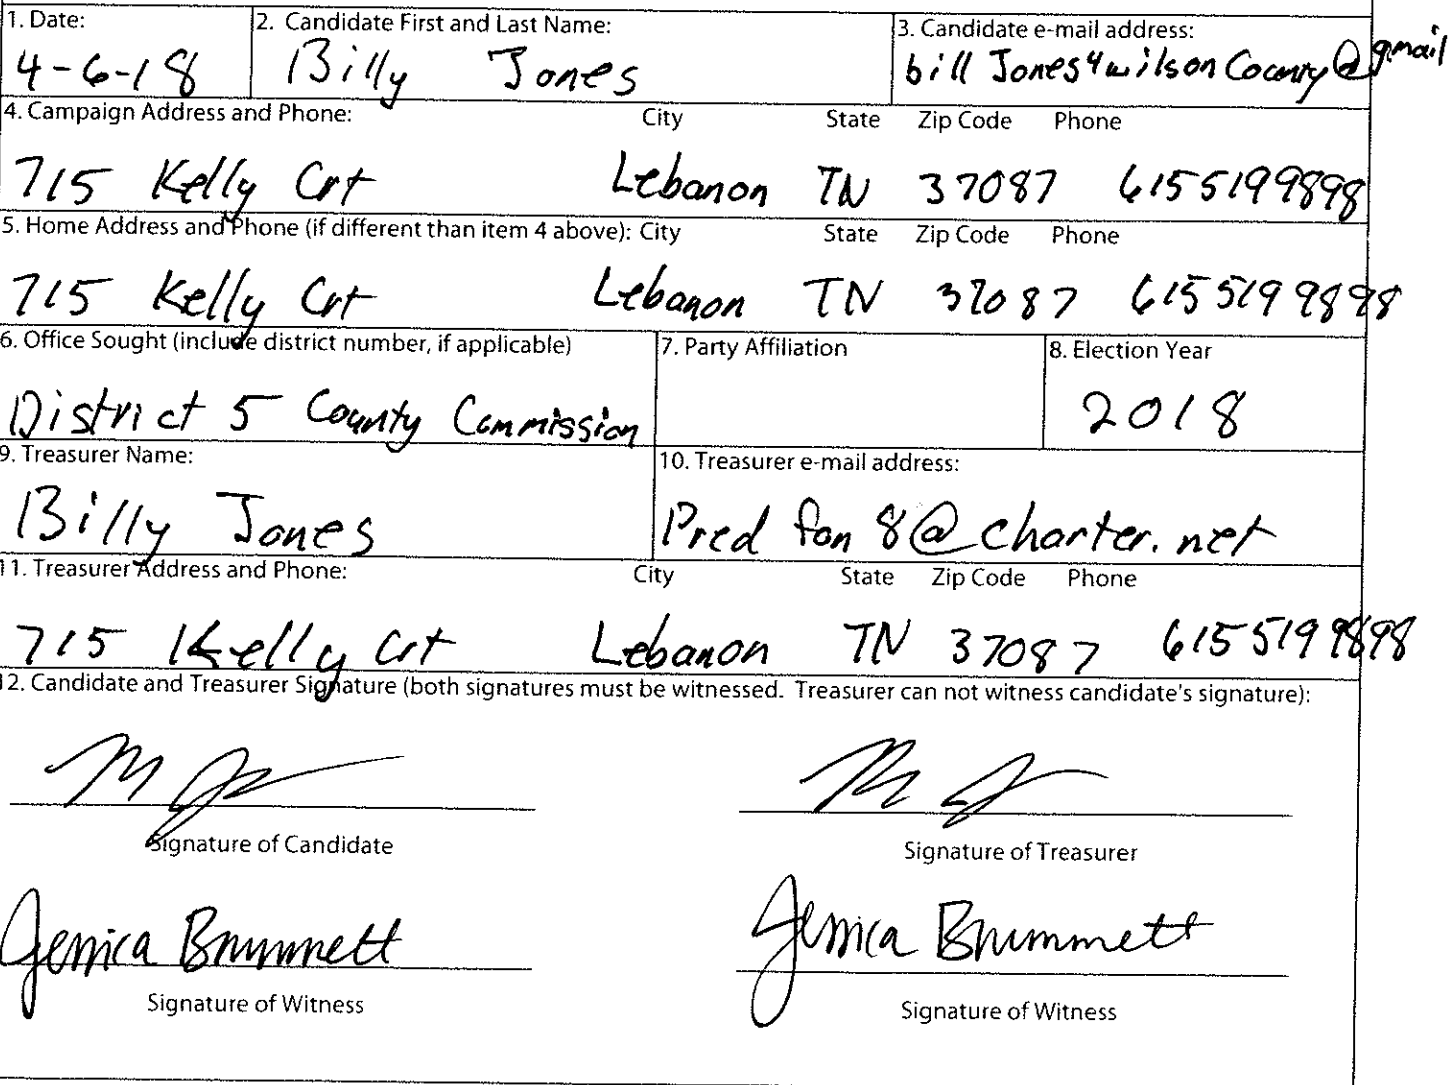 1. Date: 2. Candidate First and Last Name: 3. Candidate e-mail address:
4-6-18 Billy Jones bill Jones4wilson County@gmail
4. Campaign Address and Phone: City State Zip Code Phone
715 Kelly Crt Lebanon TN 37087 6155199898
5. Home Address and Phone (if different than item 4 above): City State Zip Code Phone
715 Kelly Crt Lebanon TN 37087 6155199898
6. Office Sought (include district number, if applicable) 7. Party Affiliation 8. Election Year
District 5 County Commission 2018
9. Treasurer Name: 10. Treasurer e-mail address:
Billy Jones Pred fan 8@charter.net
11. Treasurer Address and Phone: City State Zip Code Phone
715 Kelly Crt Lebanon TN 37087 6155199898
12. Candidate and Treasurer Signature (both signatures must be witnessed. Treasurer can not witness candidate's signature):
Signature of Candidate Signature of Treasurer
Jessica Brummett Jessica Brummett
Signature of Witness Signature of Witness